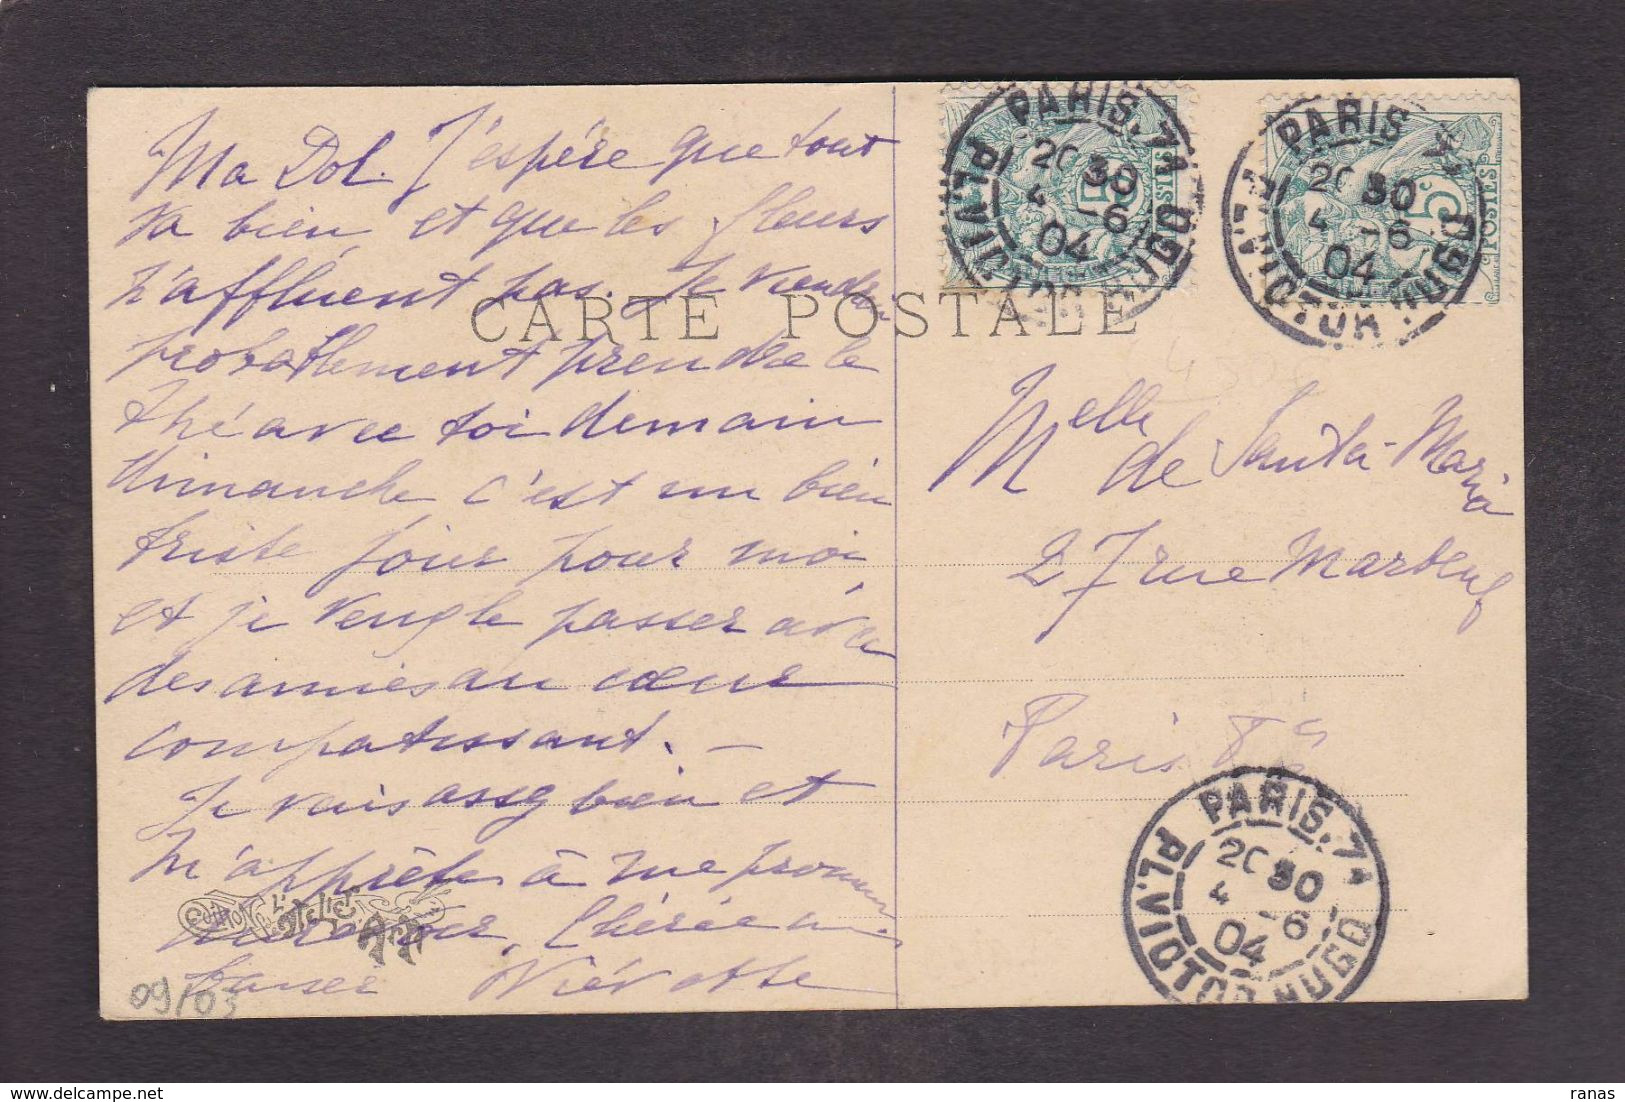 Ma Dol. J'espère que tout
va bien, et que les fleurs
n'affluent pas. Je viendrai
probablement prendre le
thé avec toi demain
dimanche c'est un bien
triste jour pour moi
et je veux le passer avec
des amies au cœur
compatissant. –
Je vais assez bien et
m'apprête à me promener
Chérie un
baiser
CARTE POSTALE
PARIS. 71
PL. VICTOR HUGO
20 30
4 -6
04
5c
POSTES
PARIS 71
PL. VICTOR HUGO
20 30
4 -6
04
5c
POSTES
Melle de Santa-Maria
27 rue Marbeuf
Paris
PARIS. 71
PL. VICTOR HUGO
20 30
4 -6
04
EDITION L'ATELIER D'ART
09/03
ranas